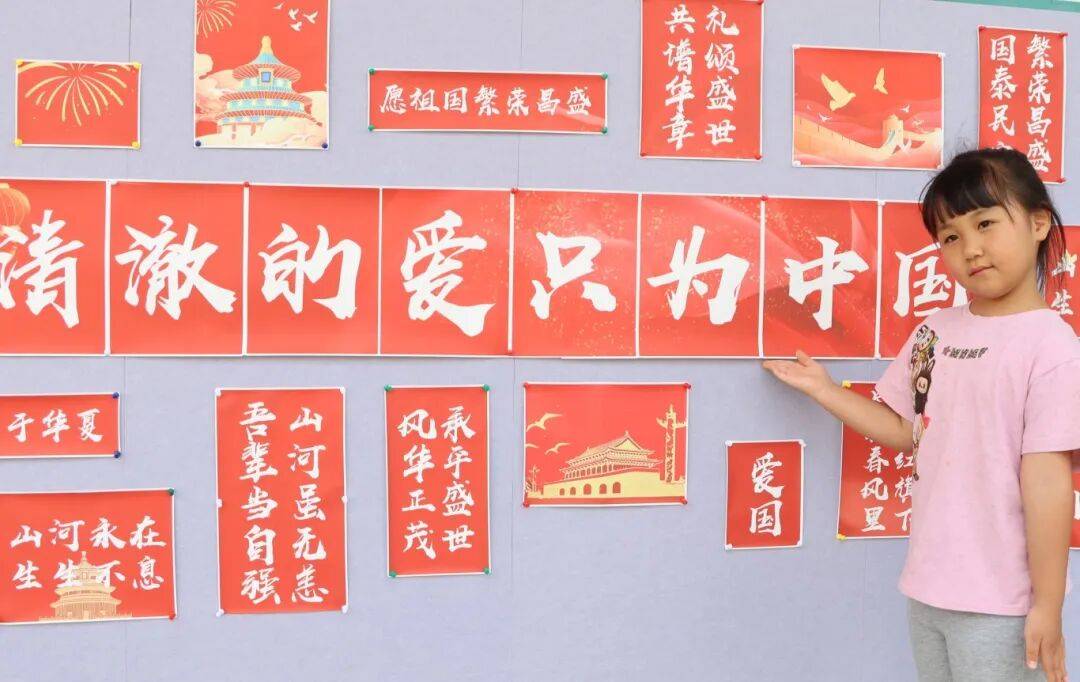 愿祖国繁荣昌盛
礼颂盛世
共谱华章
繁荣昌盛
国泰民
清澈的爱只为中国
山
生
于华夏
山河虽无恙
吾辈当自强
承平盛世
风华正茂
爱国
红旗下
春风里
山河永在
生生不息